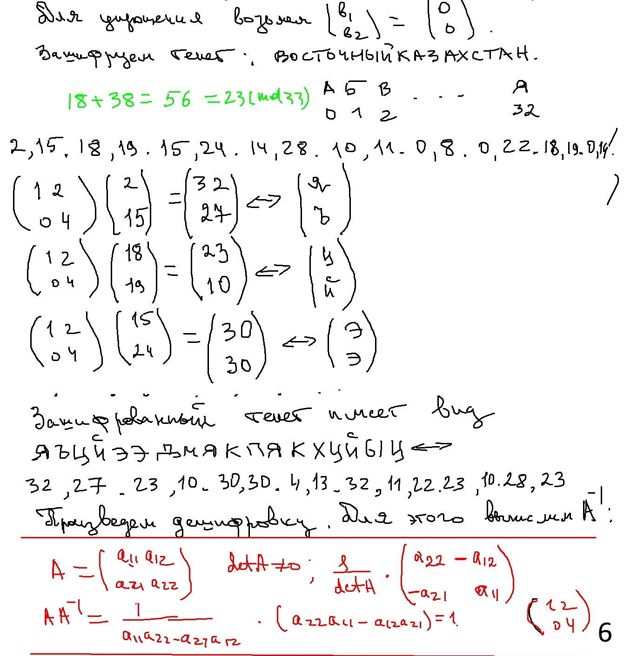 Для упрощения возьмем (в₁ в₂) = (0 0).
Зашифруем текст: ВОСТОЧНЫЙКАЗАХСТАН.
18+38=56=23(md33) А Б В . . . Я
0 1 2 32
2,15. 18,19. 15,24. 14,28. 10,11. 0,8. 0,22. 18,19. 0,14.
(1 2 0 4) (2 15) = (32 27) ⇔ (Я Ъ)
(1 2 0 4) (18 19) = (23 10) ⇔ (Ц Й)
(1 2 0 4) (15 24) = (30 30) ⇔ (Э Э)
Зашифрованный текст имеет вид
ЯЪЦЙЭЭДМЯКПЯКХЦЙЫЦ ⇔
32,27. 23,10. 30,30. 4,13. 32,11,22.23,10.28,23
Произведем дешифровку. Для этого вычислим A⁻¹:
A = (a₁₁ a₁₂ a₂₁ a₂₂) detA≠0; 1/detA · (a₂₂ -a₁₂ -a₂₁ a₁₁)
AA⁻¹ = 1/(a₁₁a₂₂-a₂₁a₁₂) · (a₂₂a₁₁-a₁₂a₂₁)=1. (1 2 0 4)
6